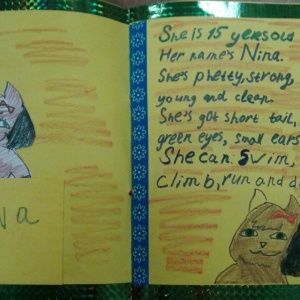 na
She is 15 yers old
Her name's Nina.
She's pretty, strong,
young and clean.
She's got short tail,
green eyes, small ears
She can swim,
climb, run and d